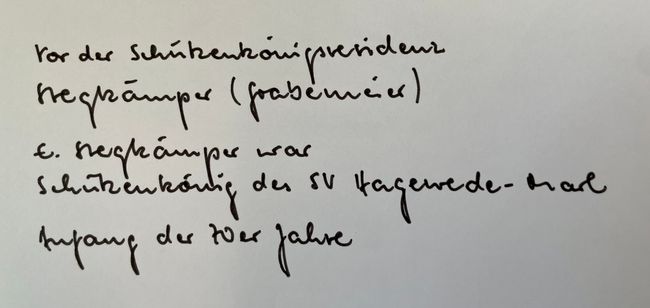 Vor der Schützenkönigsresidenz
Stegkämper (Grabemeier)
E. Stegkämper war
Schützenkönig des SV Hagewede-Marl
Anfang der 70er Jahre